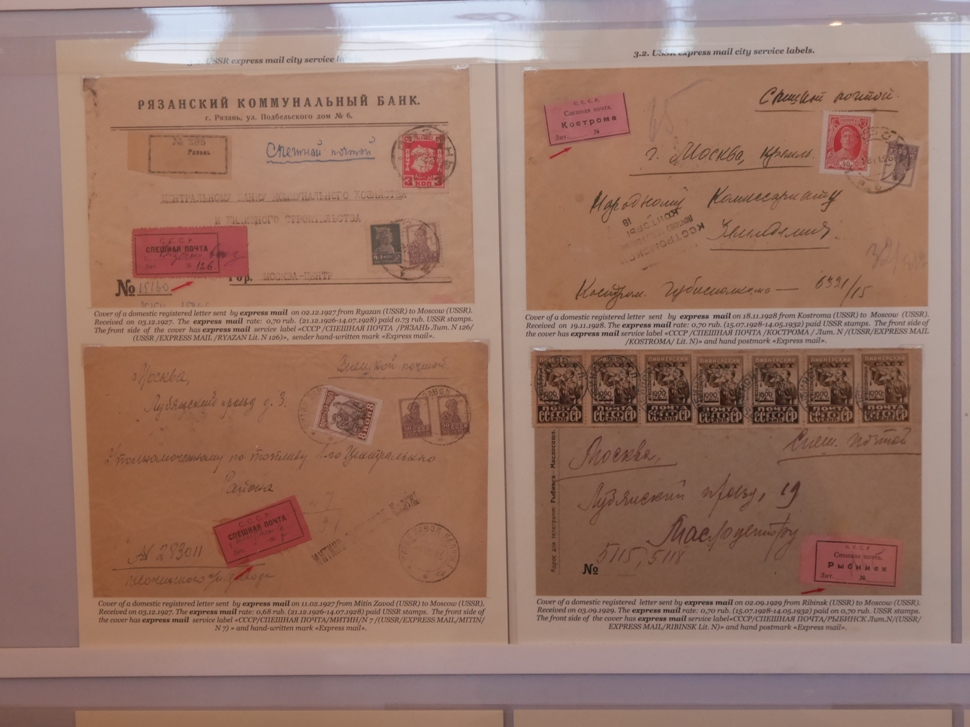 USSR express mail city service
РЯЗАНСКИЙ КОММУНАЛЬНЫЙ БАНК.
г. Рязань, ул. Подбельского дом № 6.
Рязань
Спешной почтой
ЦЕНТРАЛЬНОМУ БАНКУ КОММУНАЛЬНОГО ХОЗЯЙСТВА
И ЖИЛИЩНОГО СТРОИТЕЛЬСТВА
С.С.С.Р.
СПЕШНАЯ ПОЧТА
126
№ 15160
Гор. МОСКВА-ЦЕНТР
Cover of a domestic registered letter sent by express mail on 02.12.1927 from Ryazan (USSR) to Moscow (USSR).
Received on 03.12.1927. The express mail rate: 0,70 rub. (21.12.1926-14.07.1928) paid 0.73 rub. USSR stamps.
The front side of the cover has express mail service label «СССР /СПЕШНАЯ ПОЧТА /РЯЗАНЬ Лит. N 126/
(USSR /EXPRESS MAIL /RYAZAN Lit. N 126)», sender hand-written mark «Express mail».
Москва,
Лубянский проезд д. 3.
Района
С.С.С.Р.
СПЕШНАЯ ПОЧТА
Cover of a domestic registered letter sent by express mail on 11.02.1927 from Mitin Zavod (USSR) to Moscow (USSR).
Received on 03.12.1927. The express mail rate: 0,68 rub. (21.12.1926-14.07.1928) paid USSR stamps. The front side of
the cover has express mail service label «СССР/СПЕШНАЯ ПОЧТА/МИТИН/N 7 /(USSR/EXPRESS MAIL/MITIN/
N 7) » and hand-written mark «Express mail».
3.2. USSR express mail city service labels.
С.С.С.Р.
Спешная почта.
Кострома
Лит. №
Спешной почтой.
г. Москва, Кремль.
Народному Комиссариату
Земледелия.
0391/15
Cover of a domestic registered letter sent by express mail on 18.11.1928 from Kostroma (USSR) to Moscow (USSR).
Received on 19.11.1928. The express mail rate: 0,70 rub. (15.07.1928-14.05.1932) paid USSR stamps. The front side of
the cover has express mail service label «СССР /СПЕШНАЯ ПОЧТА /КОСТРОМА / Лит. N /(USSR/EXPRESS MAIL
/KOSTROMA/ Lit. N)» and hand postmark «Express mail».
Спеш. почтой
Москва,
Лубянский проезд, 19
№ 5115, 5118
С.С.С.Р.
Спешная почта.
Рыбинск
Лит. №
Cover of a domestic registered letter sent by express mail on 02.09.1929 from Ribinsk (USSR) to Moscow (USSR).
Received on 03.09.1929. The express mail rate: 0,70 rub. (15.07.1928-14.05.1932) paid on 0,70 rub. USSR stamps.
The front side of the cover has express mail service label«СССР/СПЕШНАЯ ПОЧТА/РЫБИНСК Лит.N/(USSR/
EXPRESS MAIL/RIBINSK Lit. N)» and hand postmark «Express mail».